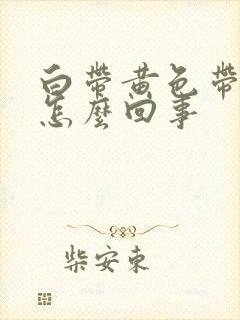 白帶黃色帶
怎麼回事
柴安東